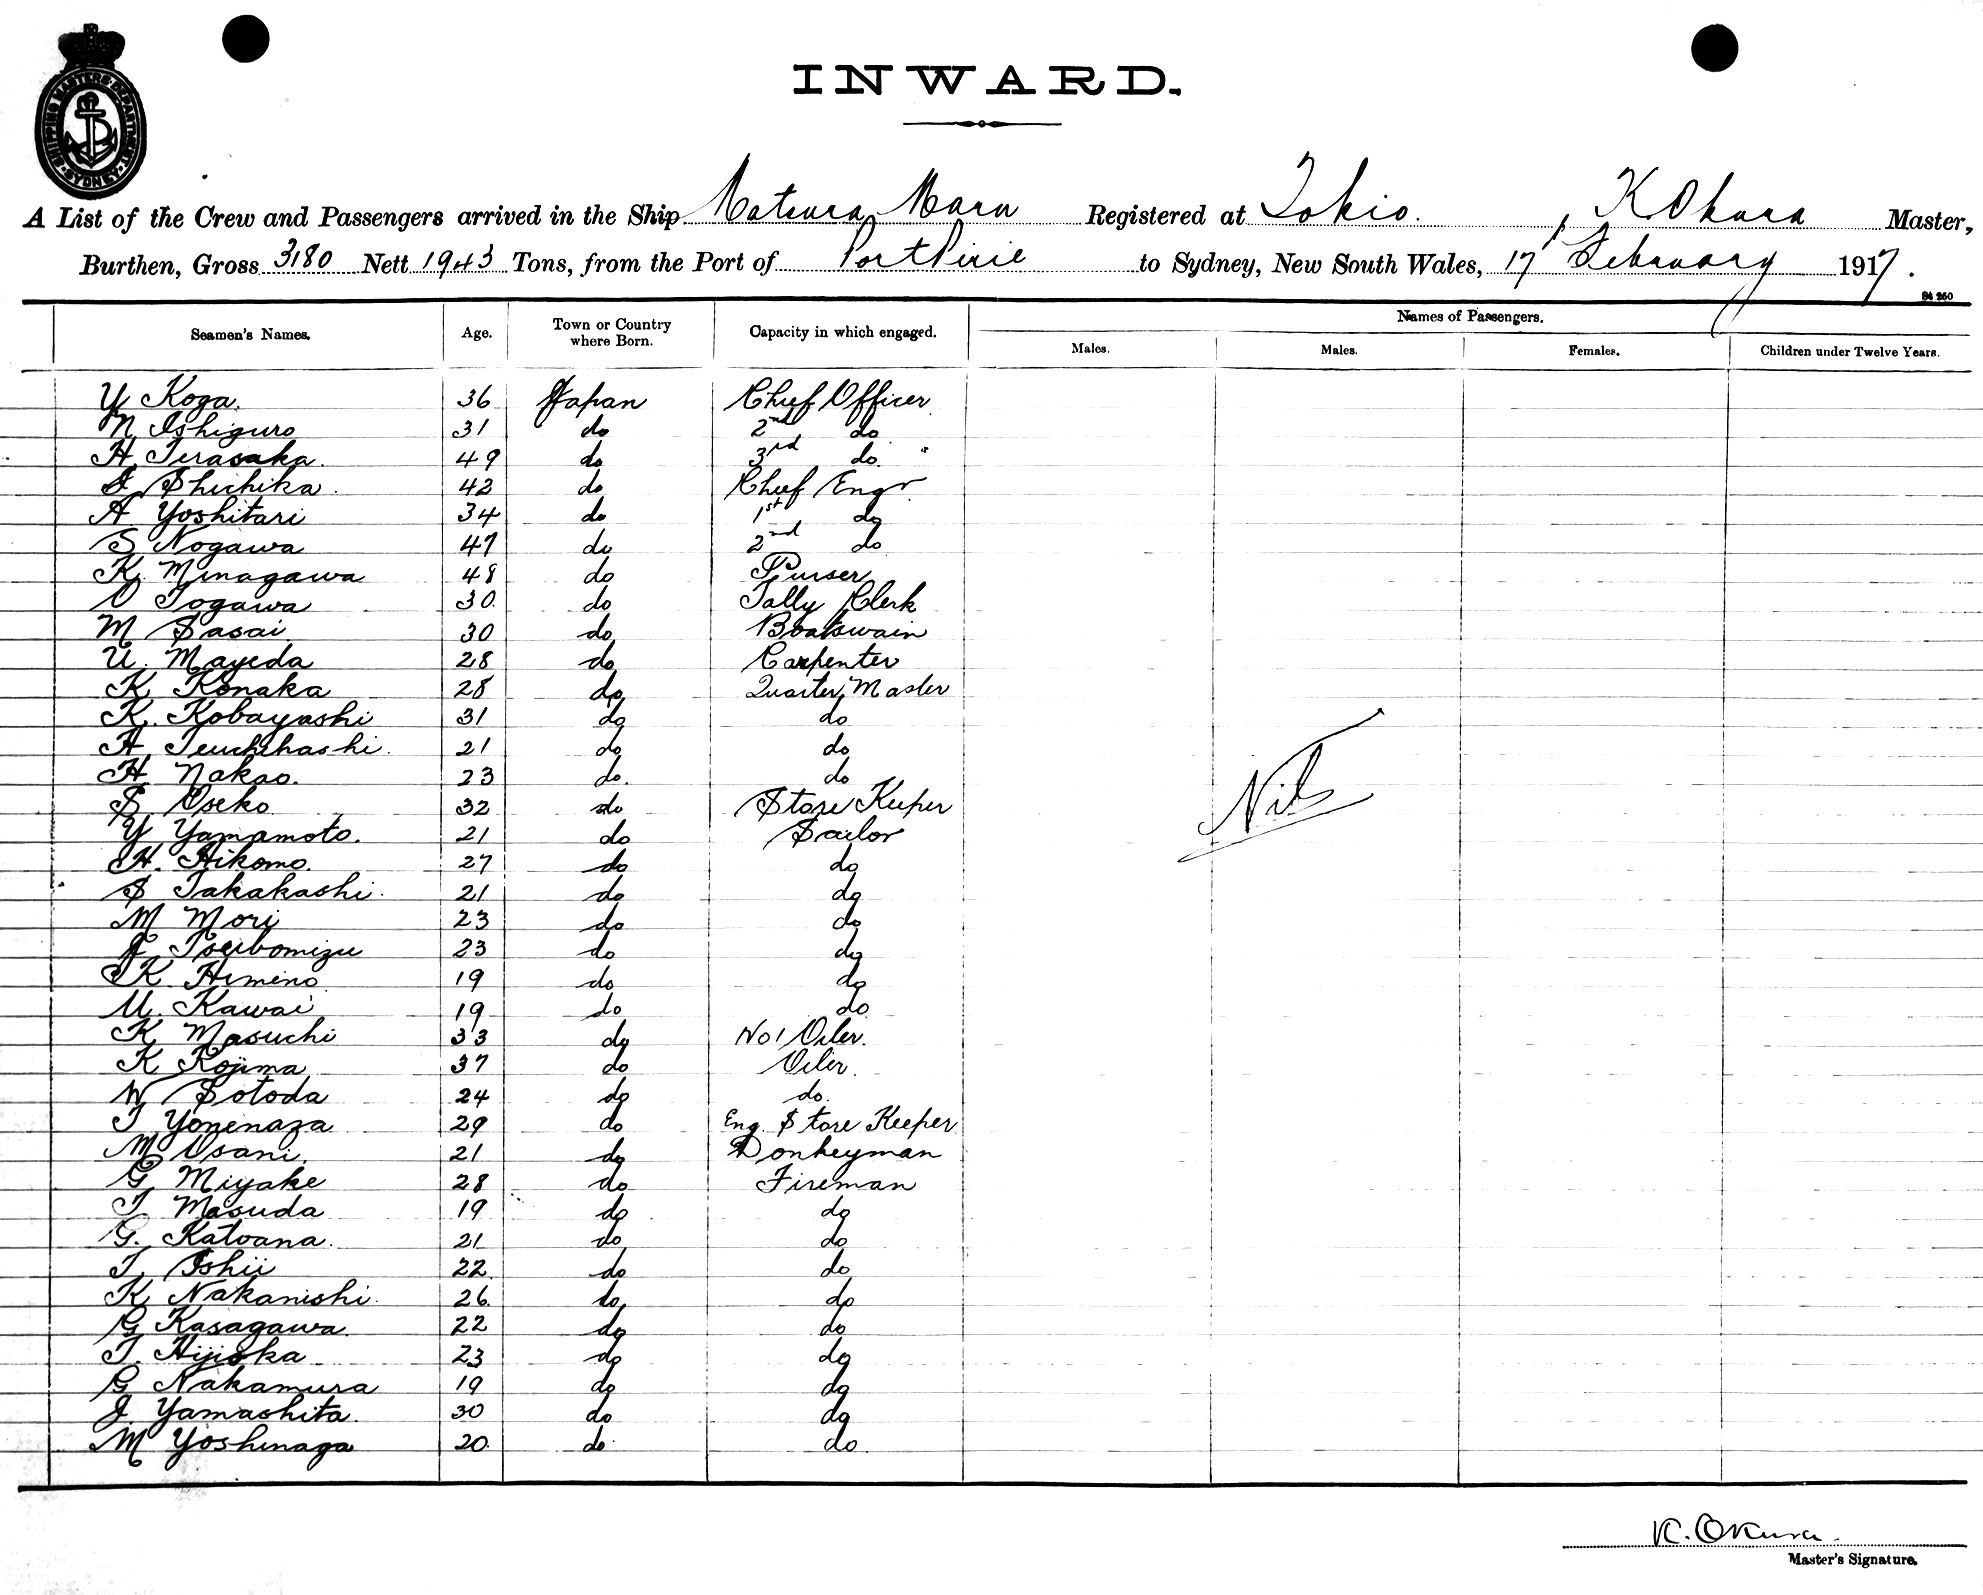 SHIPPING MASTERS DEPARTMENT
SYDNEY
INWARD.
A List of the Crew and Passengers arrived in the Ship Matsura Maru Registered at Tokio. K Okura Master,
Burthen, Gross 3180 Nett 1943 Tons, from the Port of Port Pirie to Sydney, New South Wales, 17 February 1917.
Names of Passengers.
Seamen's Names. Age. Town or Country where Born. Capacity in which engaged. Males. Males. Females. Children under Twelve Years.
Y Koga. 36 Japan Chief Officer
N Ishiguro 31 do 2nd do
H Terasaka. 49 do 3rd do "
I Shichika. 42 do Chief Engr
A Yoshitari 34 do 1st do
S Nogawa 47 do 2nd do
K. Minagawa 48 do Purser
O Togawa 30 do Tally Clerk
M Sasai 30 do Boatswain
U. Mayeda 28 do Carpenter
K Konaka 28 do Quarter Master
K. Kobayashi 31 do do
H. 21 do do
H. Nakao. 23 do. do
S Oseko 32 do Store Keeper
Y Yamamoto. 21 do Sailor
H. Hikomo. 27 do do
S Takakashi. 21 do do
M Mori 23 do do
J Tseibomizu 23 do do
K Himeno 19 do do
U. Kawai 19 do do
K Masuchi 33 do No 1 Oiler.
K Kojima 37 do Oiler.
N Sotoda 24 do do.
T Yonenaza 29 do Eng. Store Keeper
M Osani. 21 do Donkeyman
G Miyake 28 do Fireman
T Masuda 19 do do
G. Katoana. 21 do do
T. Ishii 22 do do
K Nakanishi. 26 do do
G Kasagawa. 22 do do
T. Hijioka 23 do do
G Nakamura 19 do do
J. Yamashita. 30 do do
M Yoshinaga 20. do do.
Nil
K. Okura.
Master's Signature.